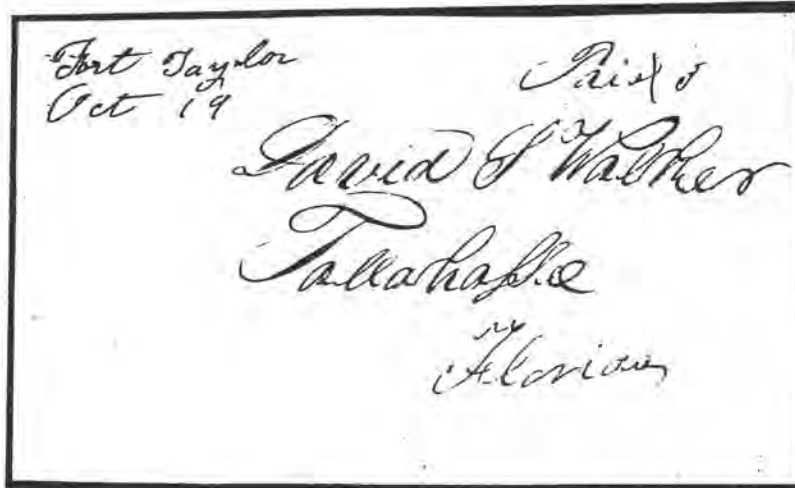 Fort Taylor
Oct 19
Paid 5
David S Walker
Tallahassee
Florida